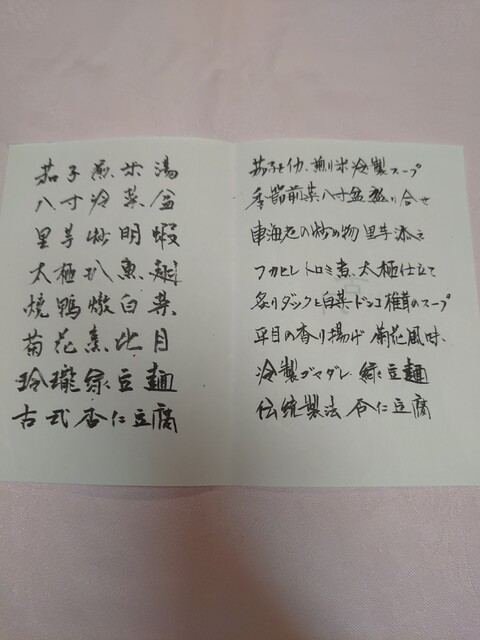 茄子煎米湯
八寸冷菜盆
里芋炒明蝦
太極扒魚翅
焼鴨燉白菜
菊花熏比目
玲瓏緑豆麺
古式杏仁豆腐
茄子と 煎り米 冷製スープ
季節前菜 八寸盆 盛り合せ
車海老の炒め物 里芋添え
フカヒレ トロミ煮 太極仕立て
炙りダックと白菜 ドンコ椎茸のスープ
平目の香り揚げ 菊花風味
冷製ゴマダレ 緑豆麺
伝統製法 杏仁豆腐